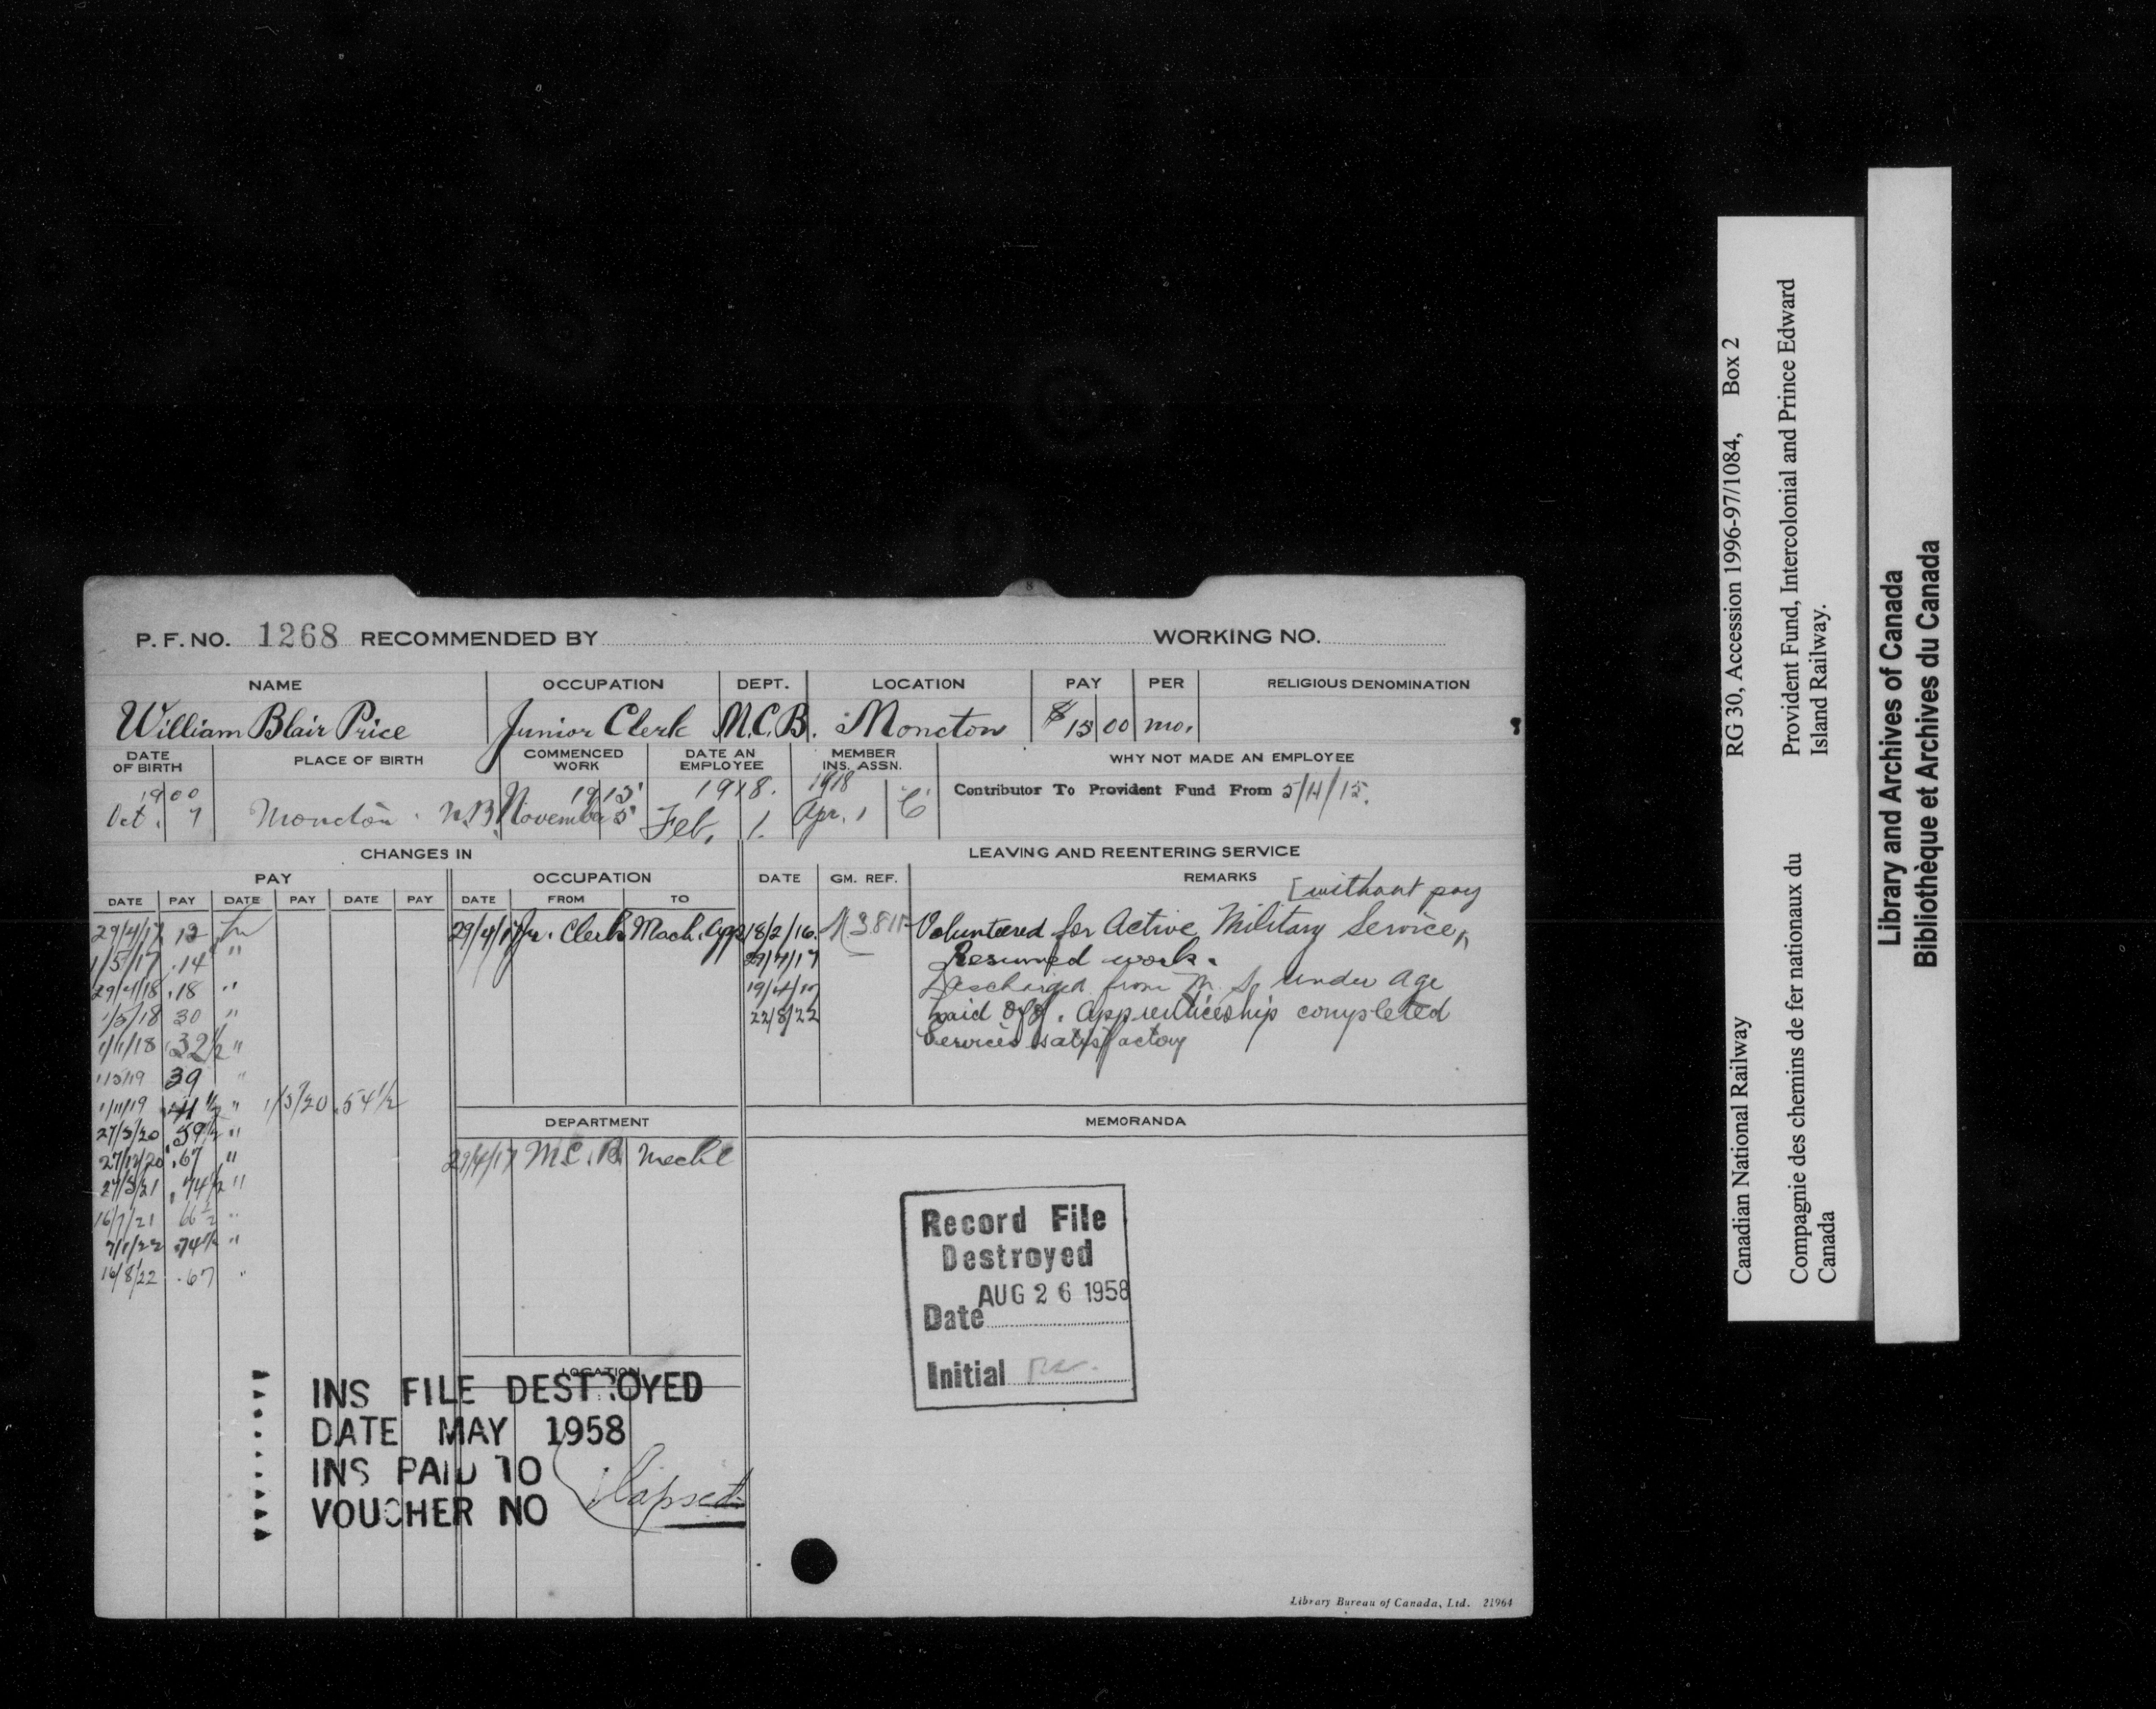 8
P. F. NO. 1268 RECOMMENDED BY WORKING NO.
NAME OCCUPATION DEPT. LOCATION PAY PER RELIGIOUS DENOMINATION
William Blair Price Junior Clerk M.C.B. Moncton $15 00 mo. 8
DATE OF BIRTH PLACE OF BIRTH COMMENCED WORK DATE AN EMPLOYEE MEMBER INS. ASSN. WHY NOT MADE AN EMPLOYEE
1900 1915 1918. 1918
Oct. 7 Moncton N.B. November 5 Feb. 1. Apr. 1 "C" Contributor To Provident Fund From 5/11/15.
CHANGES IN LEAVING AND REENTERING SERVICE
PAY OCCUPATION DATE GM. REF. REMARKS
DATE PAY DATE PAY DATE PAY DATE FROM TO
[without pay
29/4/17 12 hr 29/4/17 Jr. Clerk Mach. App 18/2/16. Volunteered for Active Military Service,
1/5/17 .14 " 29/4/17 Resumed work.
29/4/18 .18 " 19/4/17 Discharged from M. S. under age
1/5/18 30 " 22/8/22 paid off. Apprenticeship completed
1/11/18 32 1/2 " Services satisfactory
1/5/19 39 "
1/11/19 41 1/2 " 1/5/20 .54 1/2
27/5/20 .59 1/2 "
27/12/20 .67 "
27/5/21 .74 1/2 "
16/7/21 66 1/2 "
7/1/22 .74 1/2 "
16/8/22 .67 "
DEPARTMENT MEMORANDA
29/4/17 M.C.B. Mechl
Record File
Destroyed
AUG 26 1958
Date
Initial
LOCATION
INS FILE DESTROYED
DATE MAY 1958
INS PAID TO
VOUCHER NO
Lapsed
Library Bureau of Canada, Ltd. 21964
Canadian National Railway RG 30, Accession 1996-97/1084, Box 2
Compagnie des chemins de fer nationaux du Canada
Provident Fund, Intercolonial and Prince Edward Island Railway.
Library and Archives of Canada
Bibliothèque et Archives du Canada